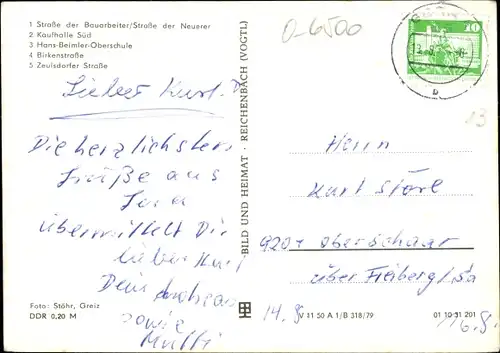 1 Straße der Bauarbeiter/Straße der Neuerer
2 Kaufhalle Süd
3 Hans-Beimler-Oberschule
4 Birkenstraße
5 Zeulsdorfer Straße
0-6500
10
13
Lieber Kurt
Die herzlichsten
Grüße aus
Gera
übermittelt Dir
lieber Kurt
Dein Andreas
sowie
Mutti
Foto: Stöhr, Greiz
DDR 0,20 M
BILD UND HEIMAT · REICHENBACH (VOGTL)
Herrn
Kurt Störl
9201 Oberschaar
über Freiberg/Sa
14. 8
V 11 50 A 1/B 318/79
01 10 31 201
16.8.